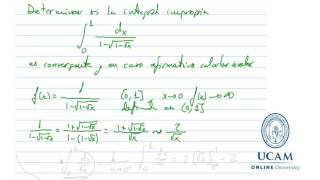 Determinar si la integral impropia
∫₀¹ dx / (1-√(1-√x))
es convergente y en caso afirmativo calcular valor
f(x) = 1 / (1-√(1-√x)) (0,1] x→0 f(x)→∞
definida en (0,1]
1 / (1-√(1-√x)) = (1+√(1-√x)) / (1-(1-√x)) = (1+√(1-√x)) / √x ≈ 2/√x
UCAM
ONLINE University